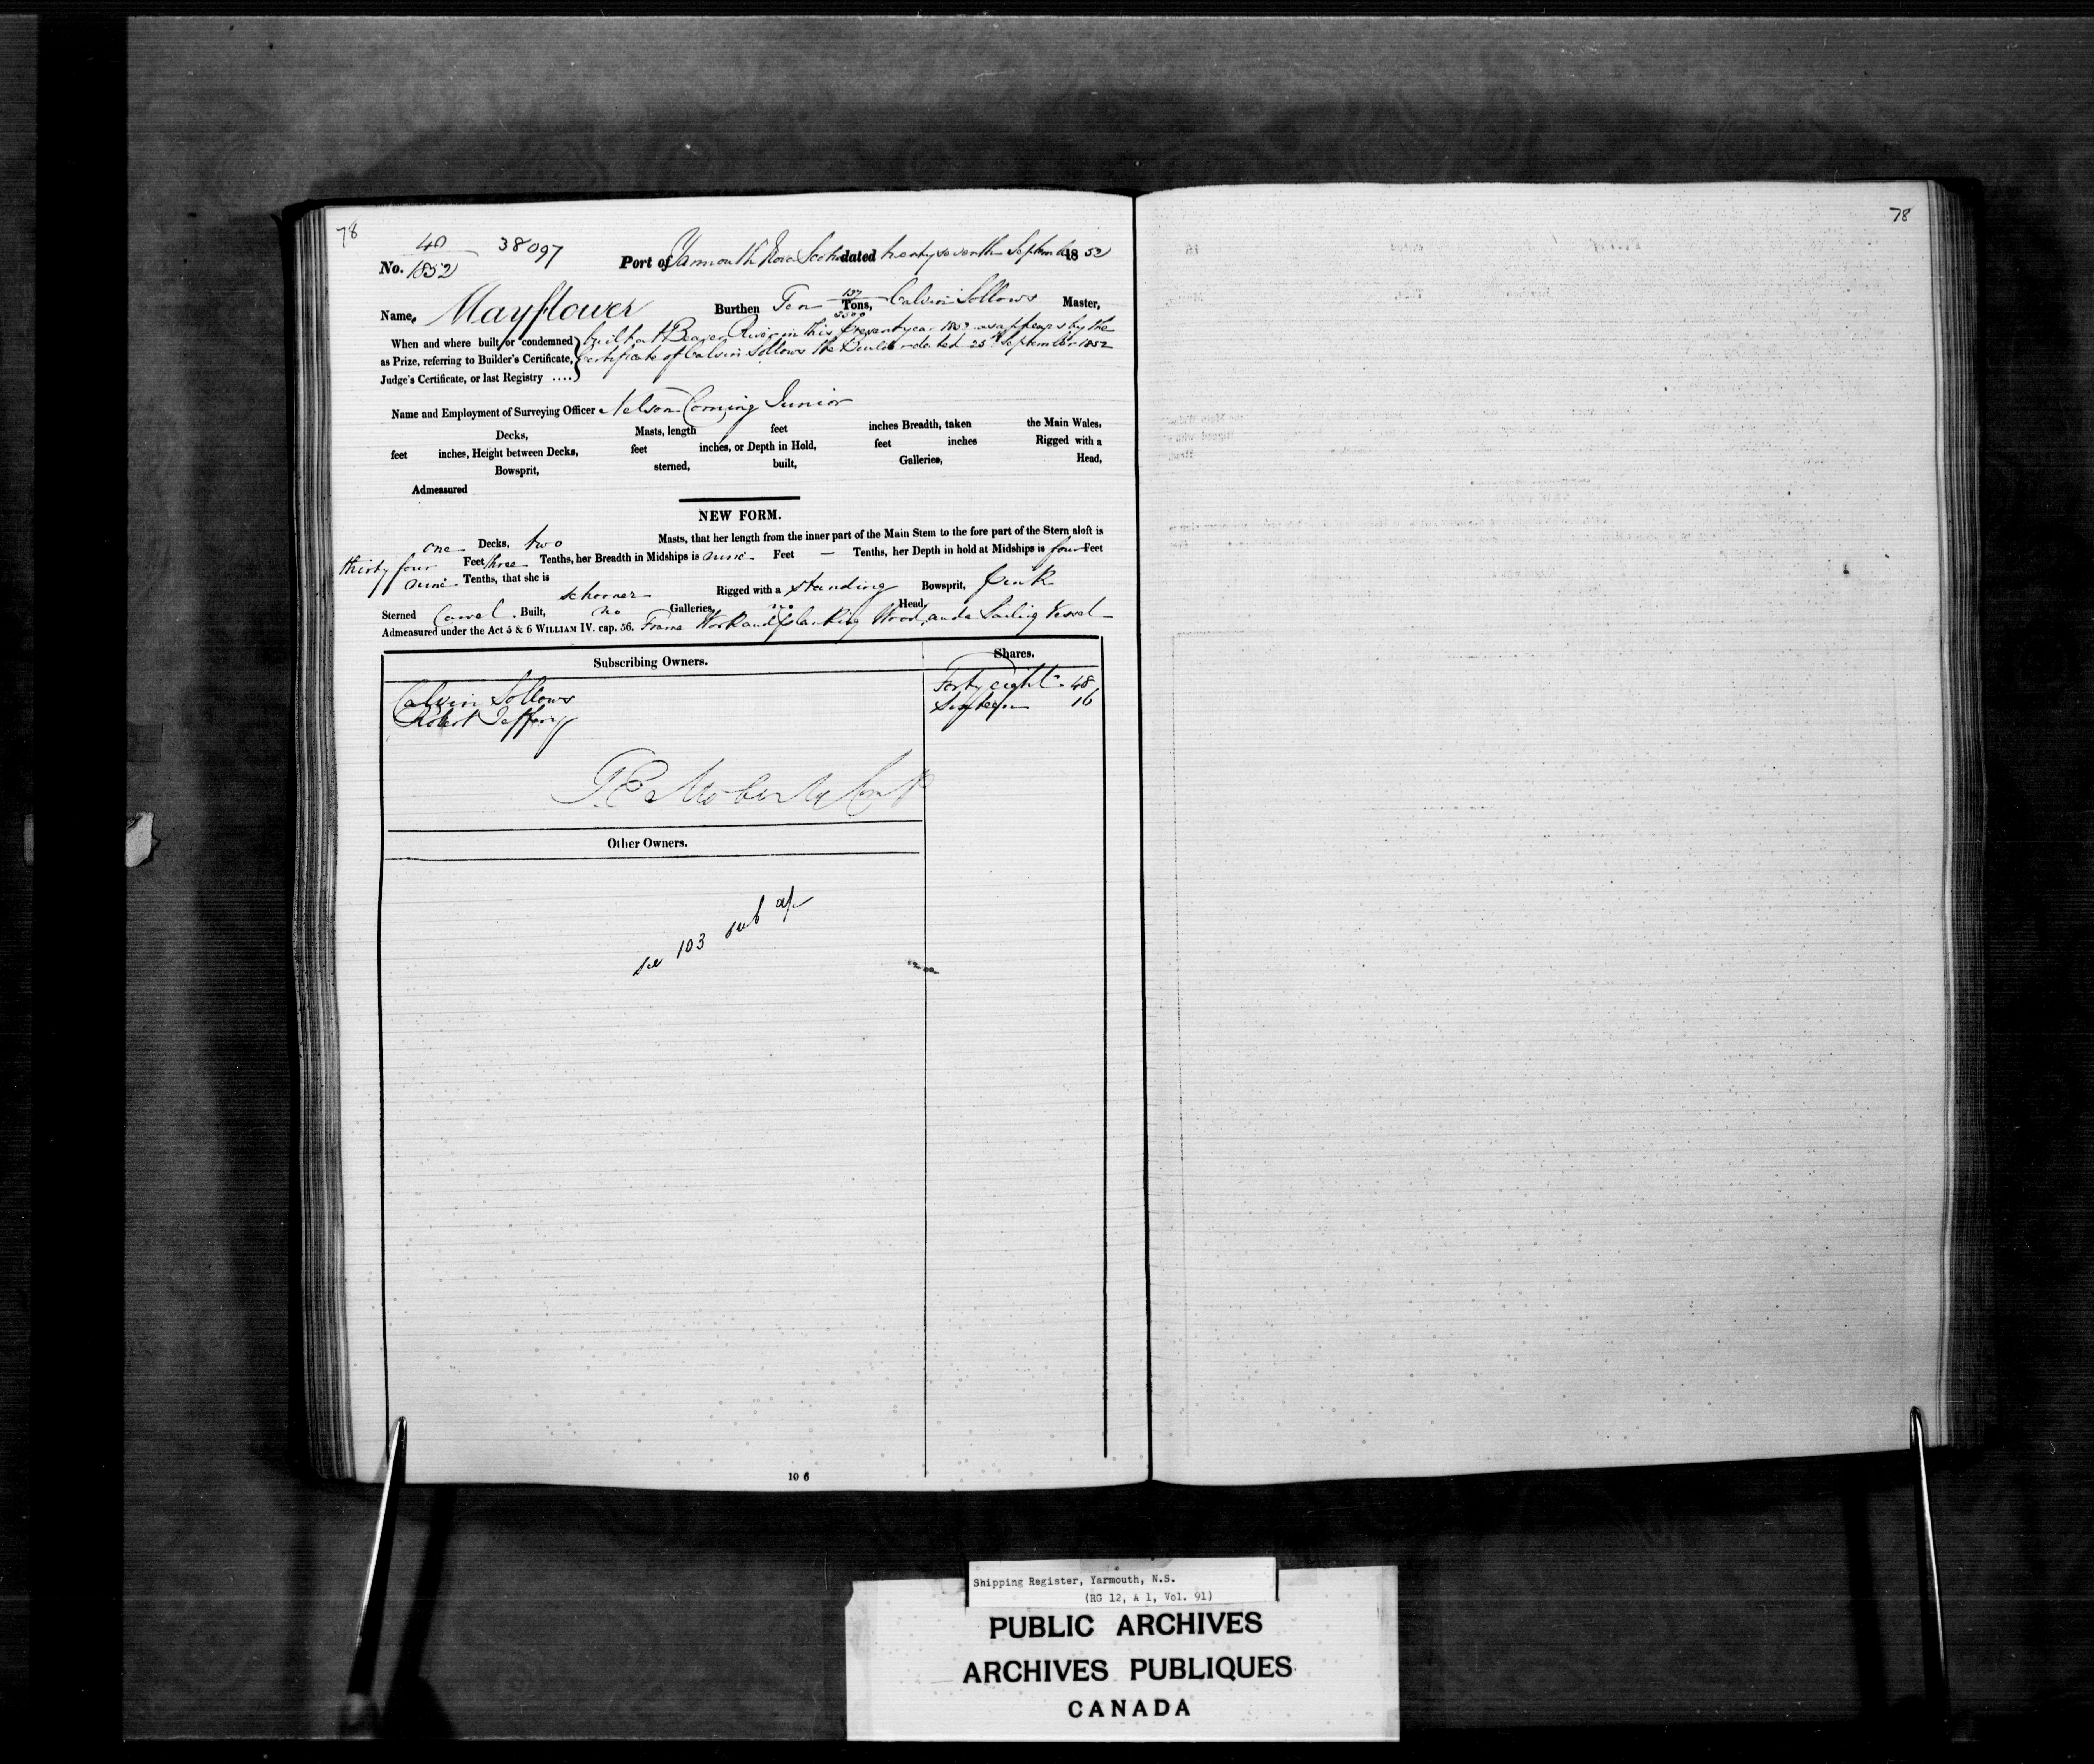 78
78
40 38097
No. 1852 Port of Yarmouth Nova Scotia dated twenty seventh September 1852
Name, Mayflower Burthen Ten 137/3500 Tons, Calvin Sollows Master,
When and where built or condemned built at Beaver River in this present year 1852 as appears by the
as Prize, referring to Builder's Certificate, Certificate of Calvin Sollows the Builder dated 25th September 1852
Judge's Certificate, or last Registry ....
Name and Employment of Surveying Officer Nelson Corning Junior
Decks, Masts, length feet inches Breadth, taken the Main Wales,
feet inches, Height between Decks, feet inches, or Depth in Hold, feet inches Rigged with a
Bowsprit, sterned, built, Galleries, Head,
Admeasured
NEW FORM.
one Decks, two Masts, that her length from the inner part of the Main Stem to the fore part of the Stern aloft is
thirty four Feet three Tenths, her Breadth in Midships is nine Feet — Tenths, her Depth in hold at Midships is four Feet
nine Tenths, that she is
schooner Rigged with a standing Bowsprit, Pink
Sterned Carvel Built, no Galleries, no Head,
Admeasured under the Act 5 & 6 WILLIAM IV. cap. 56. Frame Work and planking Wood, and a Sailing Vessel
Subscribing Owners. Shares.
Calvin Sollows Forty eight 48
Robert Jeffery Sixteen 16
Other Owners.
see 103 sub a/c
10 6
Shipping Register, Yarmouth, N.S.
(RG 12, A 1, Vol. 91)
PUBLIC ARCHIVES
ARCHIVES PUBLIQUES
CANADA